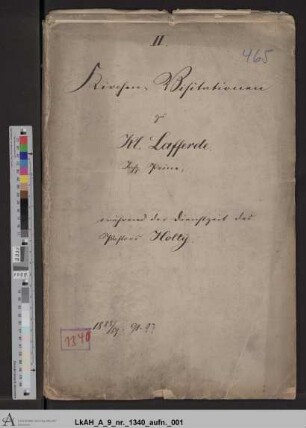 II.
465
Kirchen-Visitationen
zu
Kl. Lafferde
Insp. Peine,
während der Dienstzeit des
Pastors Holly
1340
LkAH_A_9_nr._1340_aufn._001